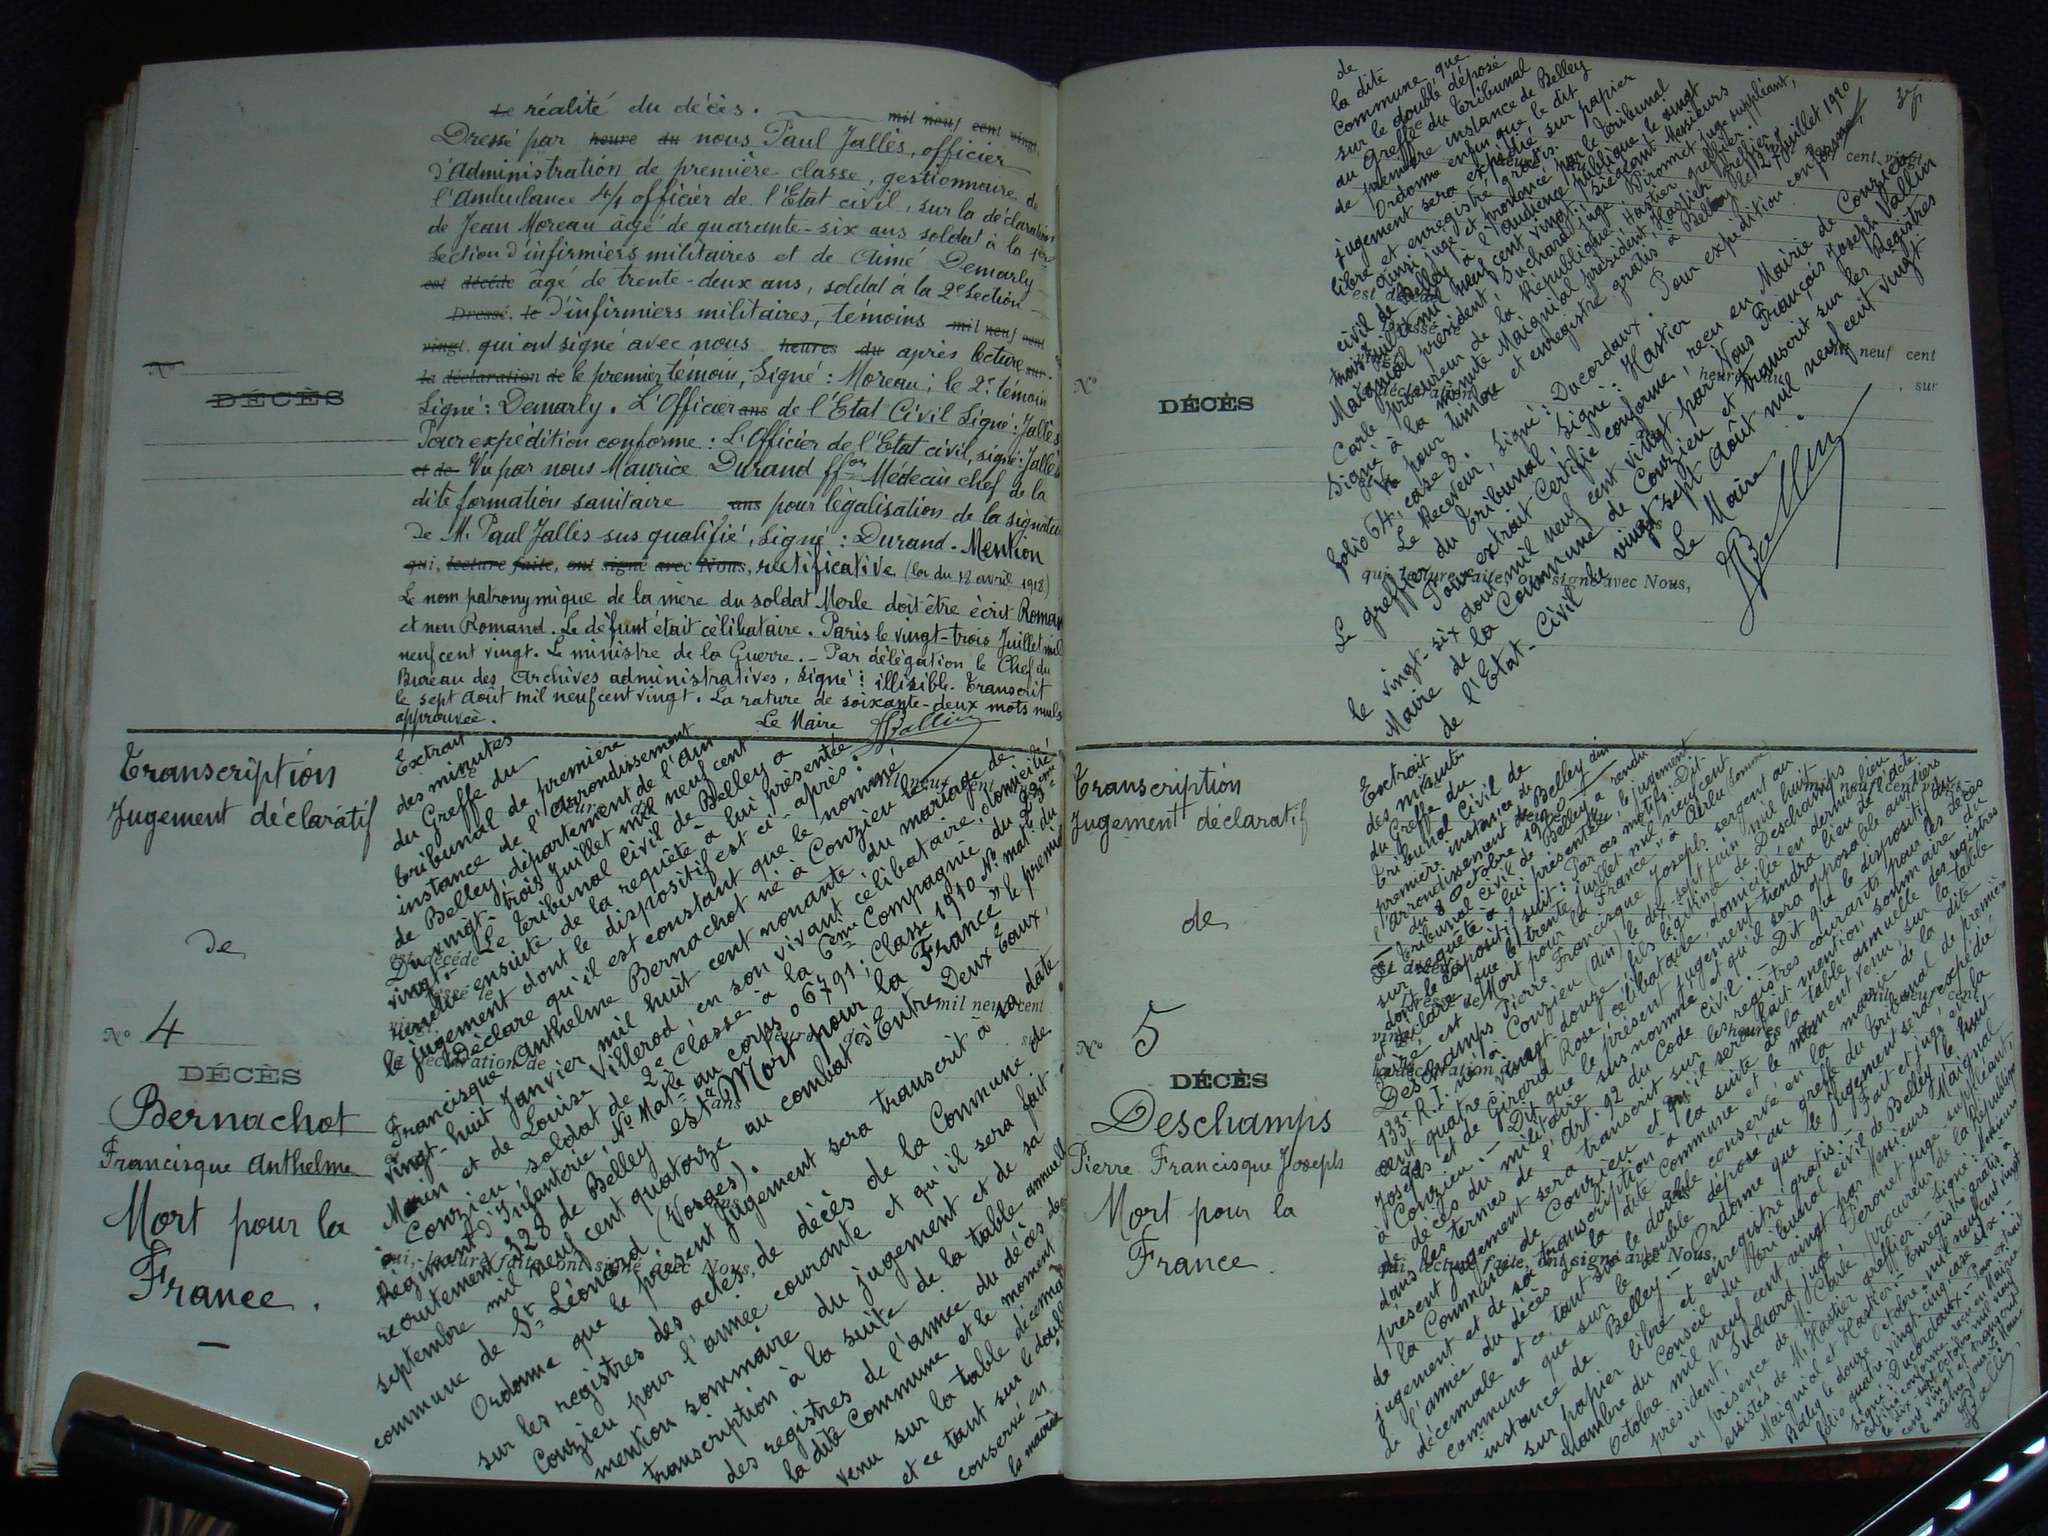 réalité du décès.
Dressé par nous Paul Jallès, officier
d'administration de première classe, gestionnaire de
l'Ambulance 4/1 officier de l'Etat civil, sur la déclaration
de Jean Moreau âgé de quarante-six ans soldat à la 1ère
section d'infirmiers militaires et de Aimé Demarly
âgé de trente-deux ans, soldat à la 2e section
d'infirmiers militaires, témoins
qui ont signé avec nous après lecture
le premier témoin, Signé : Moreau; le 2e témoin
Signé : Demarly. L'Officier de l'Etat Civil Signé : Jallès
Pour expédition conforme : L'Officier de l'Etat civil, signé : Jallès
Vu par nous Maurice Durand ffon Médecin chef de la
dite formation sanitaire pour légalisation de la signature
de M. Paul Jallès sus qualifié, signé : Durand. Mention
rectificative (loi du 18 avril 1918)
Le nom patronymique de la mère du soldat Merle doit être écrit Roman
et non Romand. Le défunt était célibataire. Paris le vingt-trois Juillet mil
neuf cent vingt. Le ministre de la Guerre. - Par délégation le Chef du
Bureau des Archives administratives, signé : illisible. Transcrit
le sept août mil neuf cent vingt. La rature de soixante-deux mots nuls
approuvée. Le Maire
N°
DÉCÈS
Transcription
Jugement déclaratif
de
N° 4
DÉCÈS
Bernachot
Francisque Anthelme
Mort pour la
France.
Extrait
des minutes
du Greffe du
tribunal de première
instance de l'arrondissement
de Belley, département de l'Ain
Du vingt-trois Juillet mil neuf cent
vingt. Le tribunal civil de Belley a
rendu ensuite de la requête à lui présentée
le jugement dont le dispositif est ci-après :
Déclare qu'il est constant que le nommé
Francisque Anthelme Bernachot né à Conzieu le
vingt-huit Janvier mil huit cent nonante, du mariage de
Marin et de Louise Villerod, en son vivant célibataire, domicilié
à Conzieu, soldat de 2e Classe à la 6ème Compagnie du 23ème
Régiment d'Infanterie, N° Matle au corps 06791; Classe 1910 N° mat. du
recrutement 328 de Belley est "Mort pour la France" le premier
septembre mil neuf cent quatorze au combat d'Entre Deux Eaux,
commune de St Léonard (Vosges).
Ordonne que le présent jugement sera transcrit à sa date
sur les registres des actes de décès de la Commune de
Conzieu pour l'année courante et qu'il sera fait
mention sommaire du jugement et de sa
transcription à la suite de la table annuelle
des registres de l'année du décès de
la dite Commune et le moment
venu sur la table décennale
et ce tant sur le double
conservé en
la mairie
de
la dite
commune que
sur le double déposé
au Greffe du tribunal
de première instance de Belley
Ordonne enfin que le dit
jugement sera expédié sur papier
libre et enregistré gratis.
Ainsi jugé et prononcé par le tribunal
civil de Belley à l'audience publique, le vingt
trois Juillet mil neuf cent vingt. Siégeant Messieurs
Maignial président, Suchard juge, Pironnet juge suppléant,
Carle procureur de la République, Hastier greffier.
Signé à la minute Maignial président, Hastier greffier
Vu pour timbre et enregistré gratis à Belley le 27 juillet 1920
folio 64, case 3.
Le Receveur, Signé : Ducordaux. Pour expédition conforme,
Le greffier du tribunal, Signé : Hastier
Pour extrait certifié conforme, reçu en Mairie de Conzieu
le vingt-six août mil neuf cent vingt par Nous François Joseph Vallin
Maire de la Commune de Conzieu et transcrit sur les Registres
de l'Etat-Civil le vingt sept Août mil neuf cent vingt.
Le Maire
N°
DÉCÈS
cent vingt
est décédé
neuf cent
heures du
, sur
déclaration
qui, lecture faite, ont signé avec Nous,
Transcription
Jugement déclaratif
de
N° 5
DÉCÈS
Deschamps
Pierre Francisque Joseph
Mort pour la
France.
Extrait
des minutes
du Greffe du
Tribunal Civil de
première instance de
l'arrondissement de Belley Ain
du 8 Octobre 1920
Le tribunal civil de Belley a rendu
sur requête à lui présentée, le jugement
dont le dispositif suit : Par ces motifs : Dit
et déclare que le trente juillet mil neuf cent
est "Mort pour la France"
Deschamps Pierre Francisque Joseph, sergent au
133e R.I. né à Conzieu (Ain) le dix-sept juin mil huit
cent quatre vingt douze, fils légitime de Deschamps
Joseph et de Girard Rose célibataire, domicilié en dernier lieu
à Conzieu. - Dit que le présent jugement tiendra lieu de l'acte
de décès du militaire susnommé et qu'il sera opposable aux tiers
dans les termes de l'Art. 92 du Code Civil. - Dit que le dispositif du
présent jugement sera transcrit sur les registres courants pour les décès
de la Commune de Conzieu et qu'il sera fait mention sommaire du
jugement et de sa transcription à la suite de la table annuelle des registres
de l'année du décès de la dite Commune et le moment venu, sur la table
décennale et ce, tant sur le double conservé en la mairie de la dite
Commune que sur le double déposé au greffe du tribunal de première
instance de Belley - Ordonne que le jugement sera expédié
sur papier libre et enregistré gratis. - Fait et jugé en la
chambre du Conseil du tribunal civil de Belley, le huit
Octobre mil neuf cent vingt par Messieurs Maignial
président, Suchard juge, Peronet juge suppléant,
en présence de M. Carle procureur de la République
assistés de M. Hastier greffier - Signé :
Maignial et Hastier - Enregistré gratis à
Belley le douze Octobre mil neuf cent vingt
folio quatre vingt cinq case six.
Signé : Ducordaux - Pour extrait